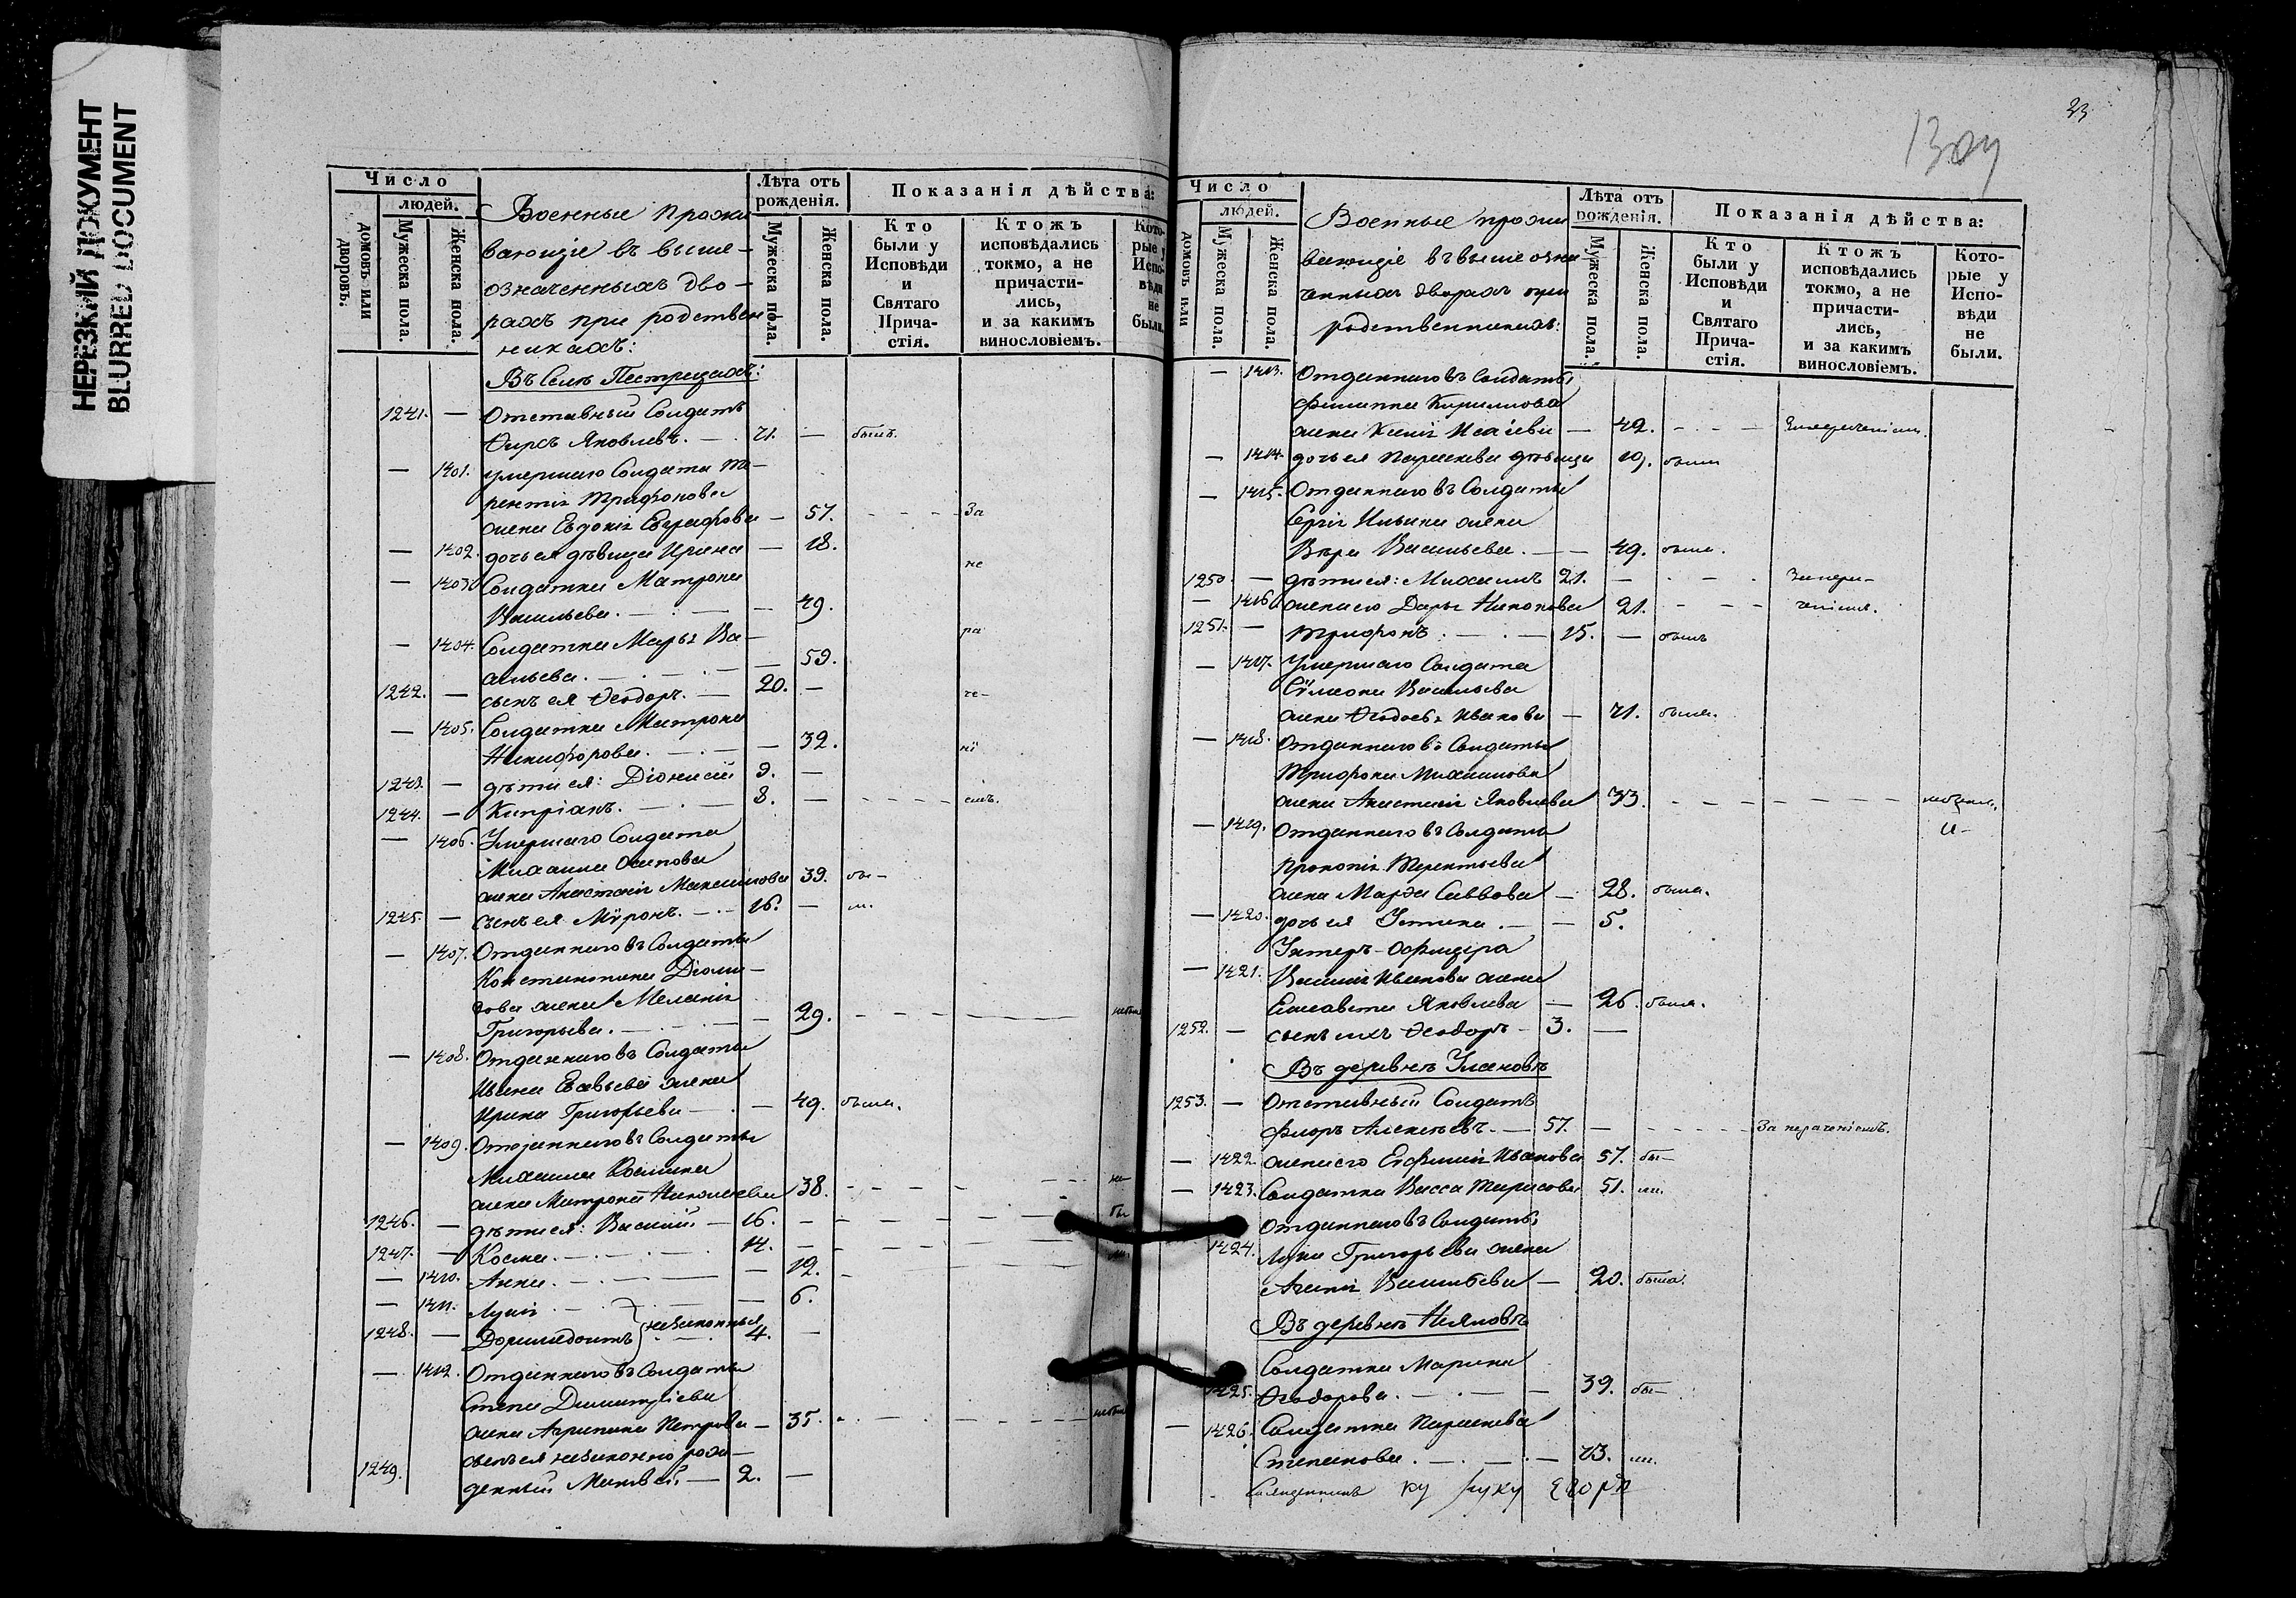 НЕРЕЗКИЙ ДОКУМЕНТ
BLURRED DOCUMENT
Число
людей.
домовъ или дворовъ.
Мужеска пола.
Женска пола.
Военные прожи
вающіе въ выше-
означенныхъ дво-
рахъ при родствен
никахъ:
Лѣта отъ рожденія.
Мужеска пола.
Женска пола.
Показанія дѣйства:
Кто были у Исповѣди и Святаго Прича-стія.
Ктожъ исповѣдались токмо, а не причасти-лись, и за какимъ винословіемъ.
Кото-рые у Испо-вѣди не были.
Въ Селѣ Пестрецахъ:
1241. — Отставный Солдатъ
Ѳирсъ Яковлевъ. — 71. — былъ.
— 1401. умершаго Солдата Те-
рентія Трифонова
жена Евдокія Евграфова — 57. - - - За
— 1402. дочь ея дѣвица Ирина — 18.
не
— 1403. Солдатка Матрона
Васильева. — — 49.
ра
— 1404. Солдатка Марья Ва-
сильева. — — 59.
1242. — сынъ ея Ѳеодоръ. — 20. —
че-
— 1405. Солдатка Матрона
Никифорова. — — 32.
ні
1243. — дѣти ея: Діонисій 9. —
1244. — Кипріанъ. — 8. — - - - - емъ.
— 1406. Умершаго Солдата
Михаила Осипова
жена Анастасія Максимова 39. бы-
1245. — Сынъ ея Мѵронъ. — 16. — ли.
— 1407. Отданнаго въ Солдаты
Константина Діоми-
дова жена Меланія
Григорьева. — — 29. - - - небыла
— 1408. Отданнаго въ Солдаты
Ивана Евсевьева жена
Ирина Григорьева — — 49. была.
— 1409. Отданнаго въ Солдаты
Михаила Козмина
жена Матрона Николаева 38. - - - не-
1246. — дѣти ея: Василій — 16. — - - - бы
1247. — Косма. — 14. — - - - ли.
— 1410. Анна. — — 12.
— 1411. Лукія — — 6.
1248. — Доримедонтъ } незаконныя 4. —
— 1412. Отданнаго въ Солдаты
Стефана Димитріева
жена Агрипина Петрова — 35. - - - небыла
сынъ ея незаконно рож-
1249. денный Матвѣй — 2. —
23
Число
людей.
домовъ или
Мужеска пола.
Женска пола.
Военные прожи
вающіе въ выше озна
ченныхъ дворахъ при
родственникахъ:
Лѣта отъ рожденія.
Мужеска пола.
Женска пола.
Показанія дѣйства:
Кто были у Исповѣди и Святаго Прича-стія.
Ктожъ исповѣдались токмо, а не причасти-лись, и за какимъ винословіемъ.
Кото-рые у Испо-вѣди не были.
— 1413. Отданнаго въ Солдаты
Филиппа Кирилова
жена Ксенія Исаіева — 42. - - - Занераченіемъ.
— 1414. дочь ея Параскева дѣвица 19. была
— 1415. Отданнаго въ Солдаты
Сергія Ильина жена
Вѣра Васильева. — — 49. была.
1250. — дѣти ея: Михаилъ 21. — - - Занера-
— 1416. жена его Дарья Никонова 21. - - - ченіемъ.
1251. — Трифонъ. — 15. — былъ
— 1417. Умершаго Солдата
Сѵмеона Васильева
жена Ѳеодосья Иванова — 71. была.
— 1418. Отданнаго въ Солдаты
Трифона Михаилова
жена Анастасія Яковлева 33. - - - небыла.
— 1419. Отданнаго въ Солдаты
Прокопія Терентьева
жена Марѳа Саввова — 28. была.
— 1420. дочь ея Устина. — — 5.
Унтеръ-Офицера
— 1421. Василія Иванова жена
Елисавета Яковлева — 26. была.
1252. — сынъ ихъ Ѳеодоръ — 3. —
Въ деревнѣ Улановѣ
1253. — Отставный Солдатъ
Флоръ Алексѣевъ. — 57. — - - - За нераченіемъ.
— 1422. жена его Евфимія Иванова 57. бы-
— 1423. Солдатка Васса Тарасова 51. ли.
Отданнаго въ Солдаты
1424. Луки Григорьева жена
Агапія Васильева — 20. была.
Въ деревнѣ Неяловѣ
Солдатка Марина
1425. Ѳеодорова. — — 39. бы-
— 1426. Солдатка Параскева
Степанова. — — 73. ли.
Священникъ